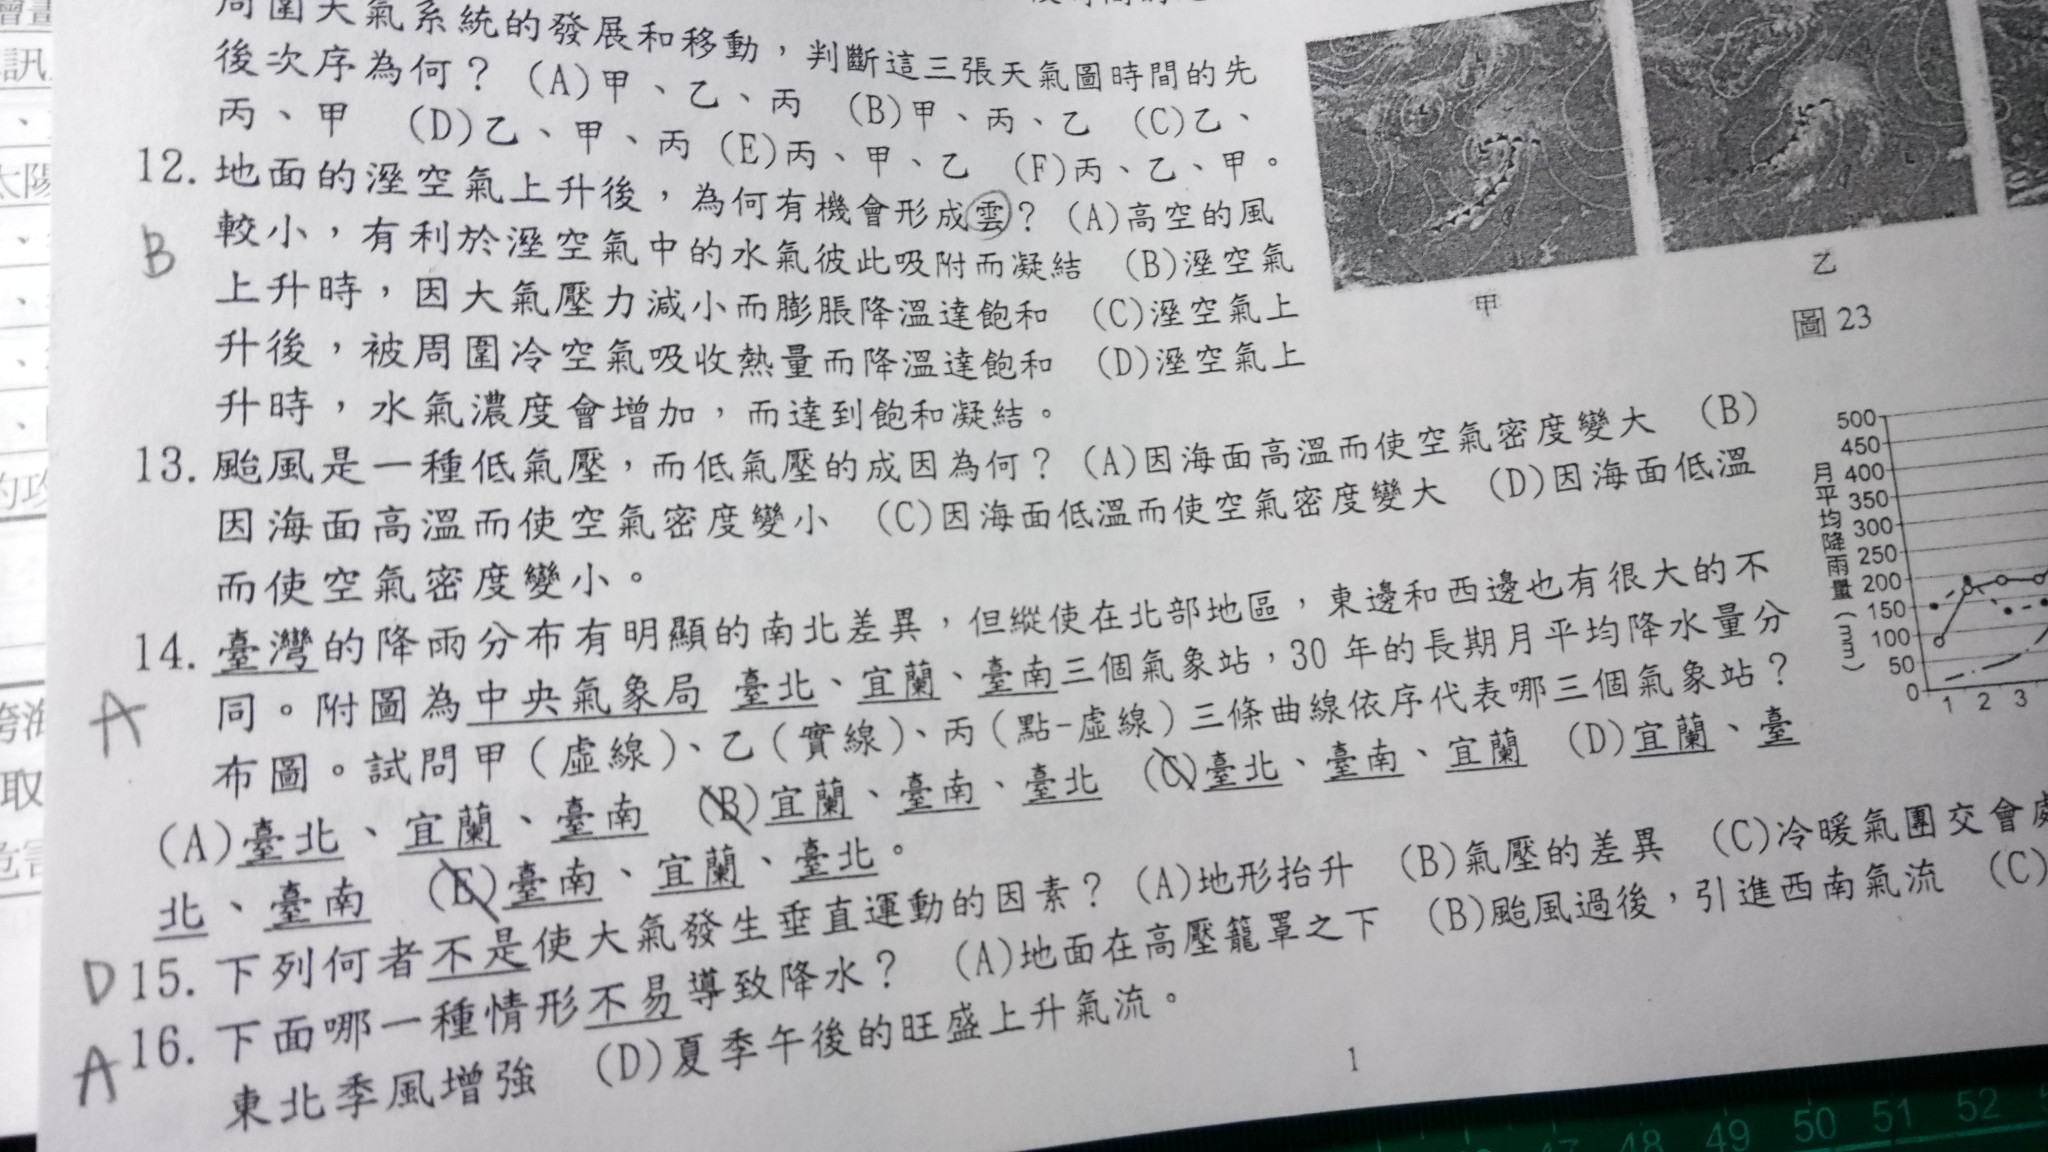 周圍天氣系統的發展和移動，判斷這三張天氣圖時間的先
後次序為何？ (A)甲、乙、丙 (B)甲、丙、乙 (C)乙、
丙、甲 (D)乙、甲、丙 (E)丙、甲、乙 (F)丙、乙、甲。
12. 地面的溼空氣上升後，為何有機會形成雲？ (A)高空的風
較小，有利於溼空氣中的水氣彼此吸附而凝結 (B)溼空氣
B
上升時，因大氣壓力減小而膨脹降溫達飽和 (C)溼空氣上
升後，被周圍冷空氣吸收熱量而降溫達飽和 (D)溼空氣上
升時，水氣濃度會增加，而達到飽和凝結。
13. 颱風是一種低氣壓，而低氣壓的成因為何？ (A)因海面高溫而使空氣密度變大 (B)
因海面高溫而使空氣密度變小 (C)因海面低溫而使空氣密度變大 (D)因海面低溫
而使空氣密度變小。
14. 臺灣的降雨分布有明顯的南北差異，但縱使在北部地區，東邊和西邊也有很大的不
A
同。附圖為中央氣象局 臺北、宜蘭、臺南三個氣象站，30 年的長期月平均降水量分
布圖。試問甲（虛線）、乙（實線）、丙（點-虛線）三條曲線依序代表哪三個氣象站？
(A)臺北、宜蘭、臺南 (B)宜蘭、臺南、臺北 (C)臺北、臺南、宜蘭 (D)宜蘭、臺
北、臺南 (E)臺南、宜蘭、臺北。
D 15. 下列何者不是使大氣發生垂直運動的因素？ (A)地形抬升 (B)氣壓的差異 (C)冷暖氣團交會處
A 16. 下面哪一種情形不易導致降水？ (A)地面在高壓籠罩之下 (B)颱風過後，引進西南氣流 (C)
東北季風增強 (D)夏季午後的旺盛上升氣流。
1
甲
乙
圖 23
月平均降雨量(mm)
500
450
400
350
300
250
200
150
100
50
0
1 2 3
訊
太陽
取
47 48 49 50 51 52